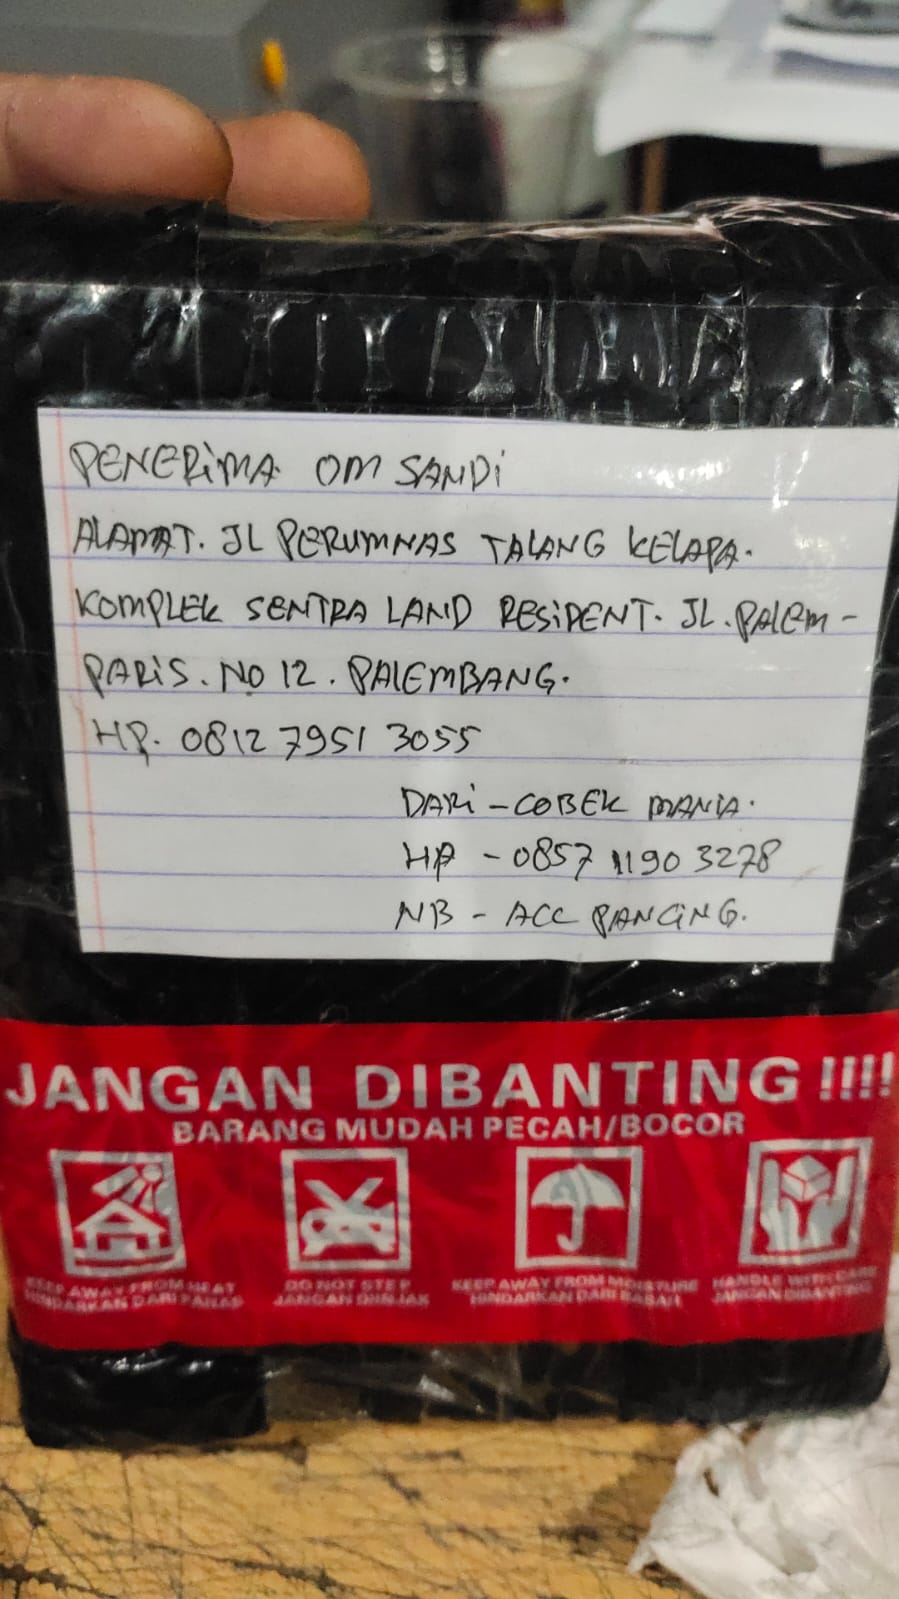 PENERiMA OM SANDi
ALAMAT. JL PERUMNAS TALANG KELAPA.
KOMPLEK SENTRA LAND RESiDENT. JL. PALEM -
PARIS. NO 12. PALEMBANG.
HP. 0812 7951 3055
DARi - COBEK MANIA.
HP - 0857 1190 3278
NB - ACC PANCiNG.
JANGAN DIBANTING !!!!
BARANG MUDAH PECAH/BOCOR
KEEP AWAY FROM HEAT
HINDARKAN DARI PANAS
DO NOT STEP
JANGAN DIINJAK
KEEP AWAY FROM MOISTURE
HINDARKAN DARI BASAH
HANDLE WITH CARE
JANGAN DIBANTING